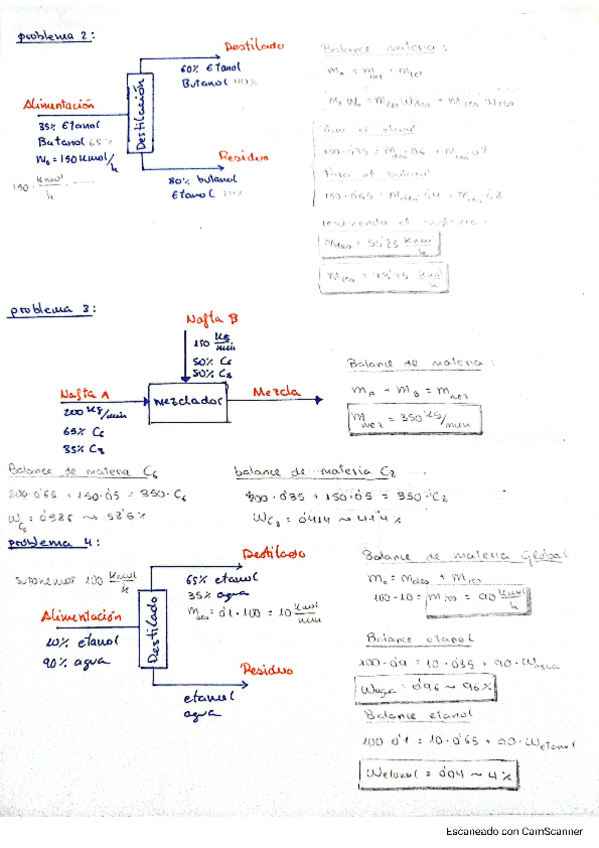 problema 2:
Destilado
60% Etanol
Butanol 40%
Alimentación
35% Etanol
Butanol 65%
W₀ = 150 Kmol/h
150 Kmol/h
Destilación
Residuo
80% butanol
Etanol 20%
Balance materia:
Para el etanol
Para el butanol
150·0'65 = m des 0'4 + m res 0'8
resolviendo el sistema:
m des = 56'25 Kmol/h
m res = 93'75 Kmol/h
problema 3:
Nafta B
150 Kg/min
50% C₆
50% C₈
Nafta A
200 Kg/min
65% C₆
35% C₈
Mezclador
Mezcla
Balance de materia:
m A + m B = m mez
m mez = 350 Kg/min
Balance de materia C₆
200·0'65 + 150·0'5 = 350·C₆
W C₆ = 0'586 ~> 58'6%
balance de materia C₈
200·0'35 + 150·0'5 = 350·C₈
W C₈ = 0'414 ~> 41'4%
problema 4:
Suponemos 100 Kmol/h
Destilado
65% etanol
35% agua
m des = 0'1·100 = 10 Kmol/min
Alimentación
10% etanol
90% agua
Destilado
Residuo
etanol
agua
Balance de materia Global
m₀ = m des + m res
100-10 = m res = 90 Kmol/h
Balance etanol
100·0'9 = 10·0'35 + 90·W agua
W agua = 0'96 ~ 96%
Balance etanol
100·0'1 = 10·0'65 + 90·W etanol
W etanol = 0'04 ~ 4%
Escaneado con CamScanner